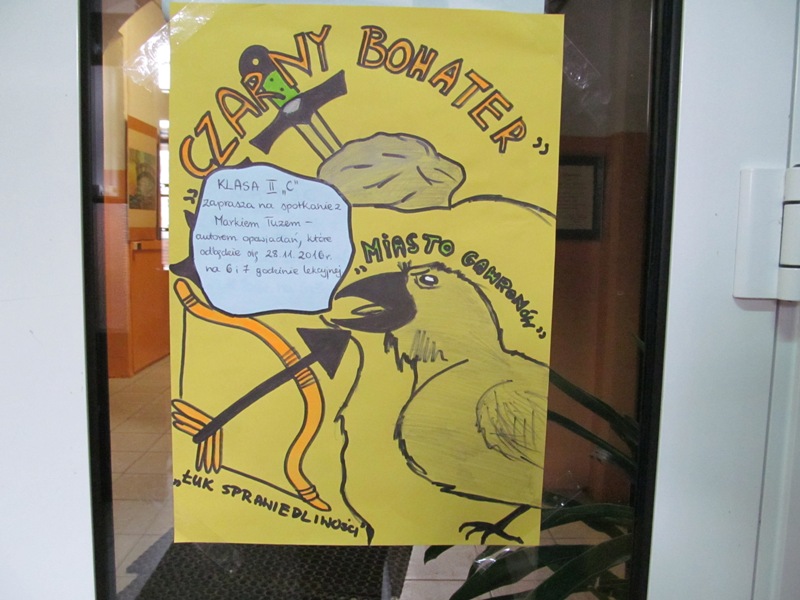 „CZARNY BOHATER”
KLASA II „C”
zaprasza na spotkanie z
Markiem Tuzem –
autorem opowiadań, które
odbędzie się 28.11.2016r.
na 6 i 7 godzinie lekcyjnej
„MIASTO GAWRONÓW”
„ŁUK SPRAWIEDLIWOŚCI”